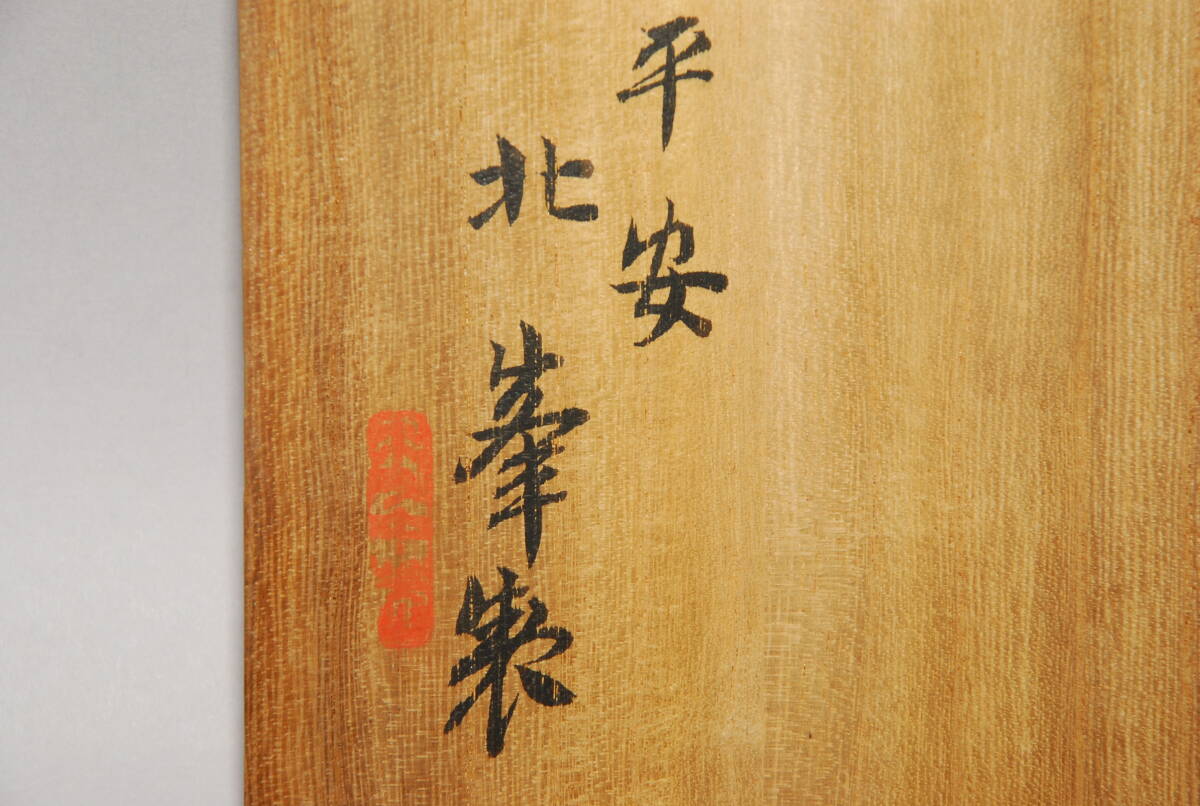 平安
北峯製